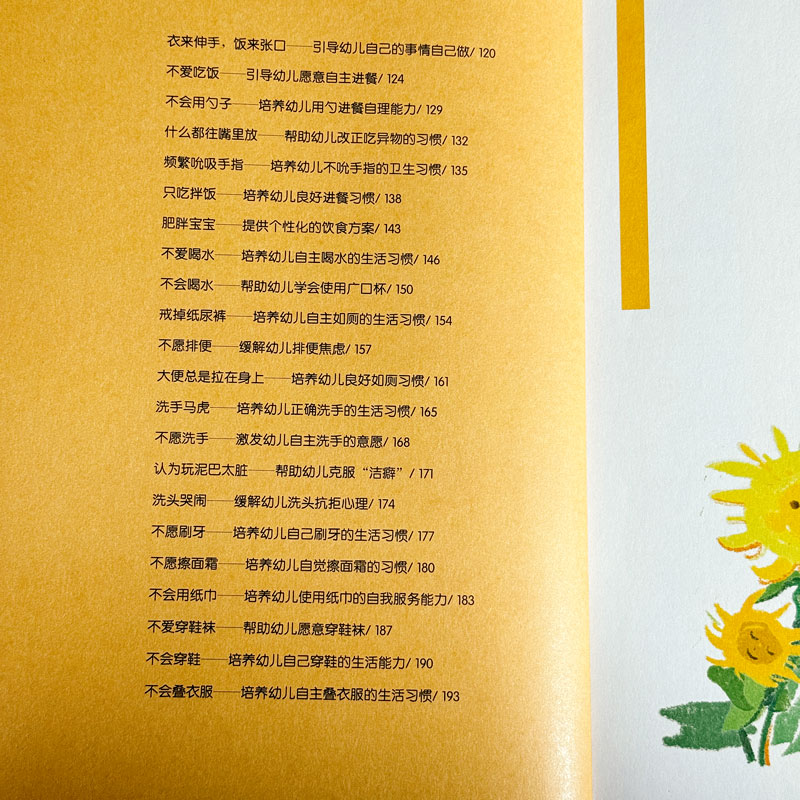 衣来伸手，饭来张口——引导幼儿自己的事情自己做/ 120
不爱吃饭——引导幼儿愿意自主进餐/ 124
不会用勺子——培养幼儿用勺进餐自理能力/ 129
什么都往嘴里放——帮助幼儿改正吃异物的习惯/ 132
频繁吮吸手指——培养幼儿不吮手指的卫生习惯/ 135
只吃拌饭——培养幼儿良好进餐习惯/ 138
肥胖宝宝——提供个性化的饮食方案/ 143
不爱喝水——培养幼儿自主喝水的生活习惯/ 146
不会喝水——帮助幼儿学会使用广口杯/ 150
戒掉纸尿裤——培养幼儿自主如厕的生活习惯/ 154
不愿排便——缓解幼儿排便焦虑/ 157
大便总是拉在身上——培养幼儿良好如厕习惯/ 161
洗手马虎——培养幼儿正确洗手的生活习惯/ 165
不愿洗手——激发幼儿自主洗手的意愿/ 168
认为玩泥巴太脏——帮助幼儿克服“洁癖”/ 171
洗头哭闹——缓解幼儿洗头抗拒心理/ 174
不愿刷牙——培养幼儿自己刷牙的生活习惯/ 177
不愿擦面霜——培养幼儿自觉擦面霜的习惯/ 180
不会用纸巾——培养幼儿使用纸巾的自我服务能力/ 183
不爱穿鞋袜——帮助幼儿愿意穿鞋袜/ 187
不会穿鞋——培养幼儿自己穿鞋的生活能力/ 190
不会叠衣服——培养幼儿自主叠衣服的生活习惯/ 193